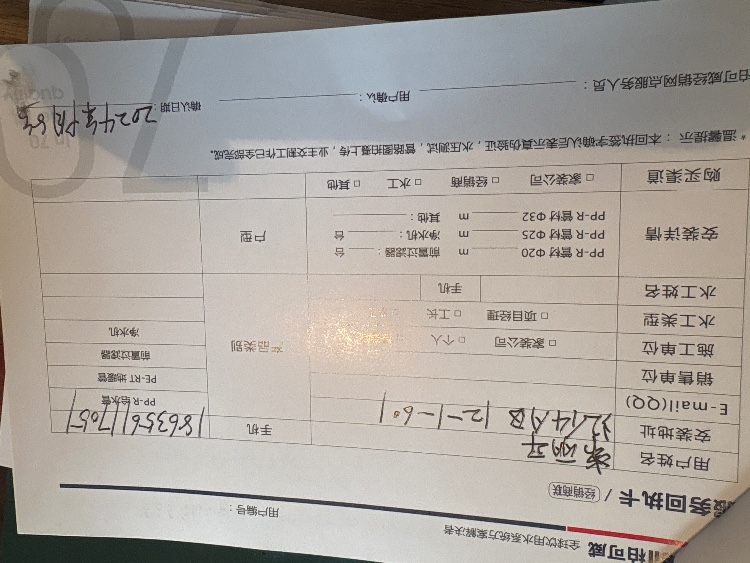 柏可威 全球饮用水系统方案解决者
用户编号：
服务回执卡 / 经销商联
用户姓名
手机 18635611705
安装地址 12-1-601
E-mail(QQ)
销售单位
施工单位 □ 家装公司 □ 个人
水工类型 □ 项目经理 □ 工长
水工姓名 手机
产品类别
PP-R 给水管
PE-RT 地暖管
前置过滤器
净水机
安装详情
PP-R 管材 Φ20 ______ m 前置过滤器：______ 台
PP-R 管材 Φ25 ______ m 净水机：______ 台
PP-R 管材 Φ32 ______ m 其他：______
户型
购买渠道 □ 家装公司 □ 经销商 □ 水工 □ 其他
* 温馨提示：本回执签字确认后表示真伪验证，水压测试，管路图拍摄上传，业主交割工作已全部完成。
柏可威经销网点服务人员：
用户确认：
确认日期：2024年